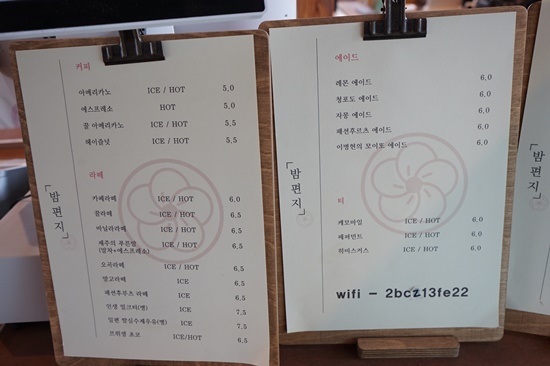 커피
아메리카노 ICE / HOT 5,0
에스프레소 HOT 5,0
꿀 아메리카노 ICE / HOT 5,5
헤이즐넛 ICE / HOT 5,5
라떼
카페라떼 ICE / HOT 6,0
꿀라떼 ICE / HOT 6,5
바닐라라떼 ICE / HOT 6,5
제주의 푸른밤 ICE / HOT 6,5
(말차+에스프레소)
오곡라떼 ICE / HOT 6,5
망고라떼 ICE 6,5
패션후루츠 라떼 ICE 6,5
인생 밀크티(병) ICE 7,5
일편 탐심수제우유(병) ICE 7,5
프위젤 초코 ICE/HOT 6,5
「밤편지」
에이드
레몬 에이드 6,0
청포도 에이드 6,0
자몽 에이드 6,0
패션후르츠 에이드 6,0
이병헌의 모이또 에이드 6,0
티
케모마일 ICE / HOT 6,0
페퍼민트 ICE / HOT 6,0
히비스커스 ICE / HOT 6,0
「밤편지」
wifi - 2bcz13fe22